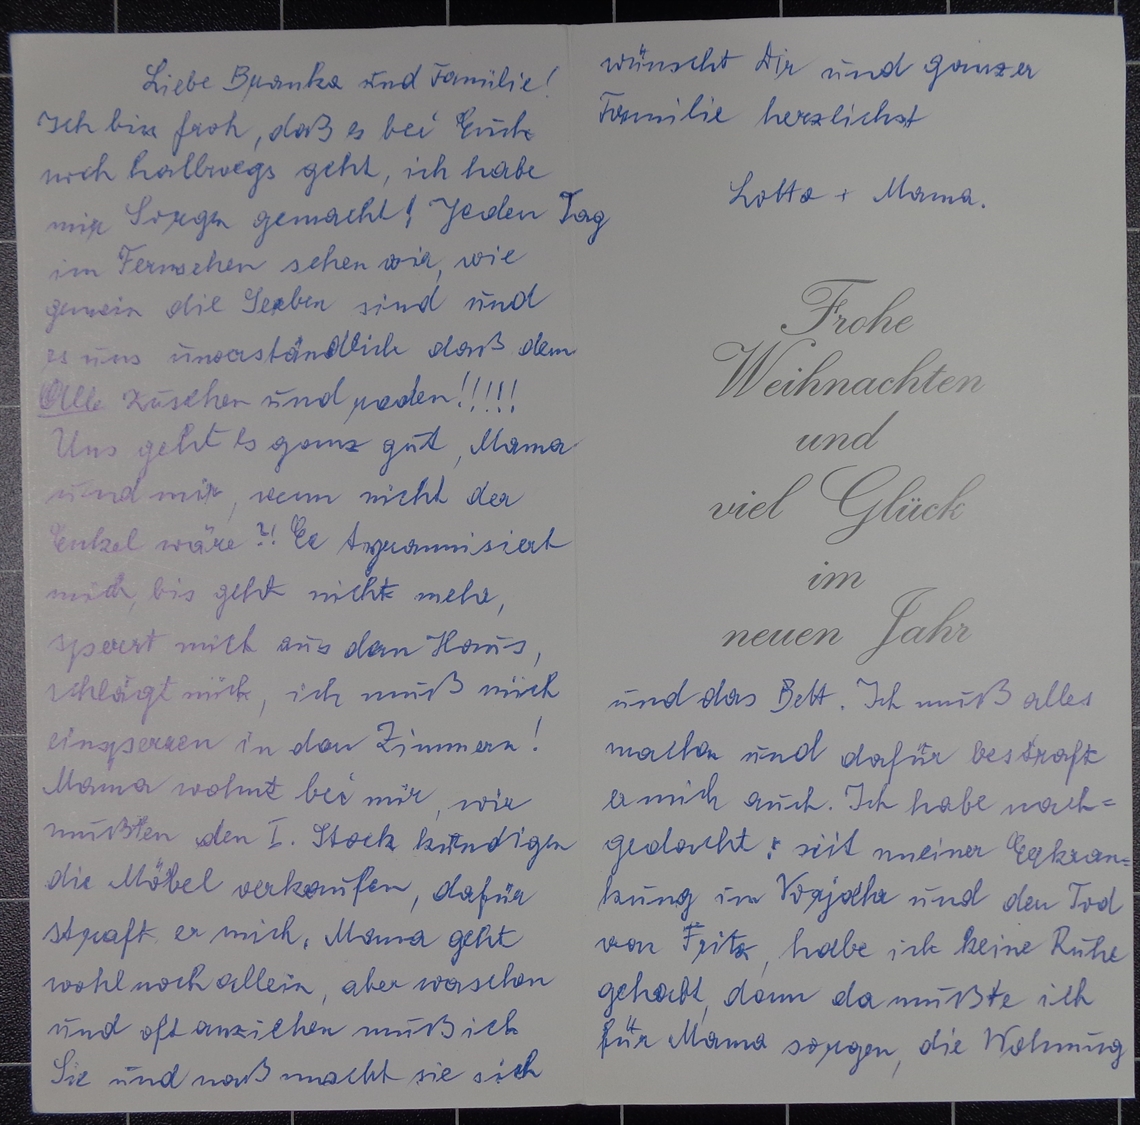 Liebe Branka und Familie!
Ich bin froh, daß es bei Euch
noch halbwegs geht, ich habe
mir Sorgen gemacht! Jeden Tag
im Fernsehen sehen wir, wie
gemein die Serben sind und
es uns unverständlich daß dem
Alle zusehen und reden!!!!!
Uns geht es ganz gut, Mama
und mir, wenn nicht der
Enkel wäre?! Er tyrannisiert
mich, bis geht nicht mehr,
sperrt mich aus dem Haus,
schlägt mich, ich muß mich
einsperren in den Zimmern!
Mama wohnt bei mir, wir
mußten den I. Stock kündigen
die Möbel verkaufen, dafür
straft er mich. Mama geht
wohl noch allein, aber waschen
und oft anziehen muß ich
Sie und naß macht sie sich
wünscht Dir und ganzer
Familie herzlichst
Lotte + Mama.
Frohe
Weihnachten
und
viel Glück
im
neuen Jahr
und das Bett. Ich muß alles
machen und dafür bestraft
er mich auch. Ich habe nach=
gedacht: seit meiner Erkran=
kung im Vorjahr und den Tod
von Fritz, habe ich keine Ruhe
gehabt, denn da mußte ich
für Mama sorgen, die Wohnung